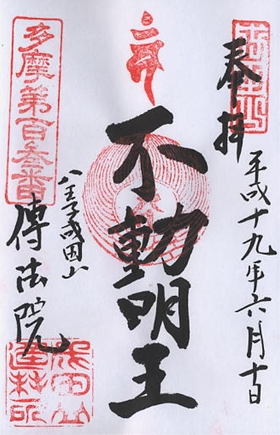 奉拝
平成十九年六月十日
不動明王
多摩第百参番
八王子成田山
傳法院